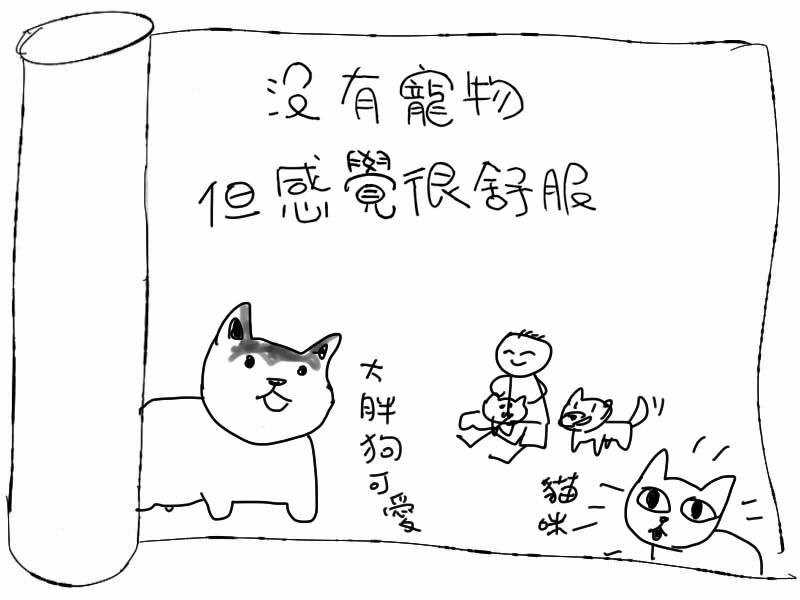 沒有寵物
但感覺很舒服
大胖狗可愛
貓咪